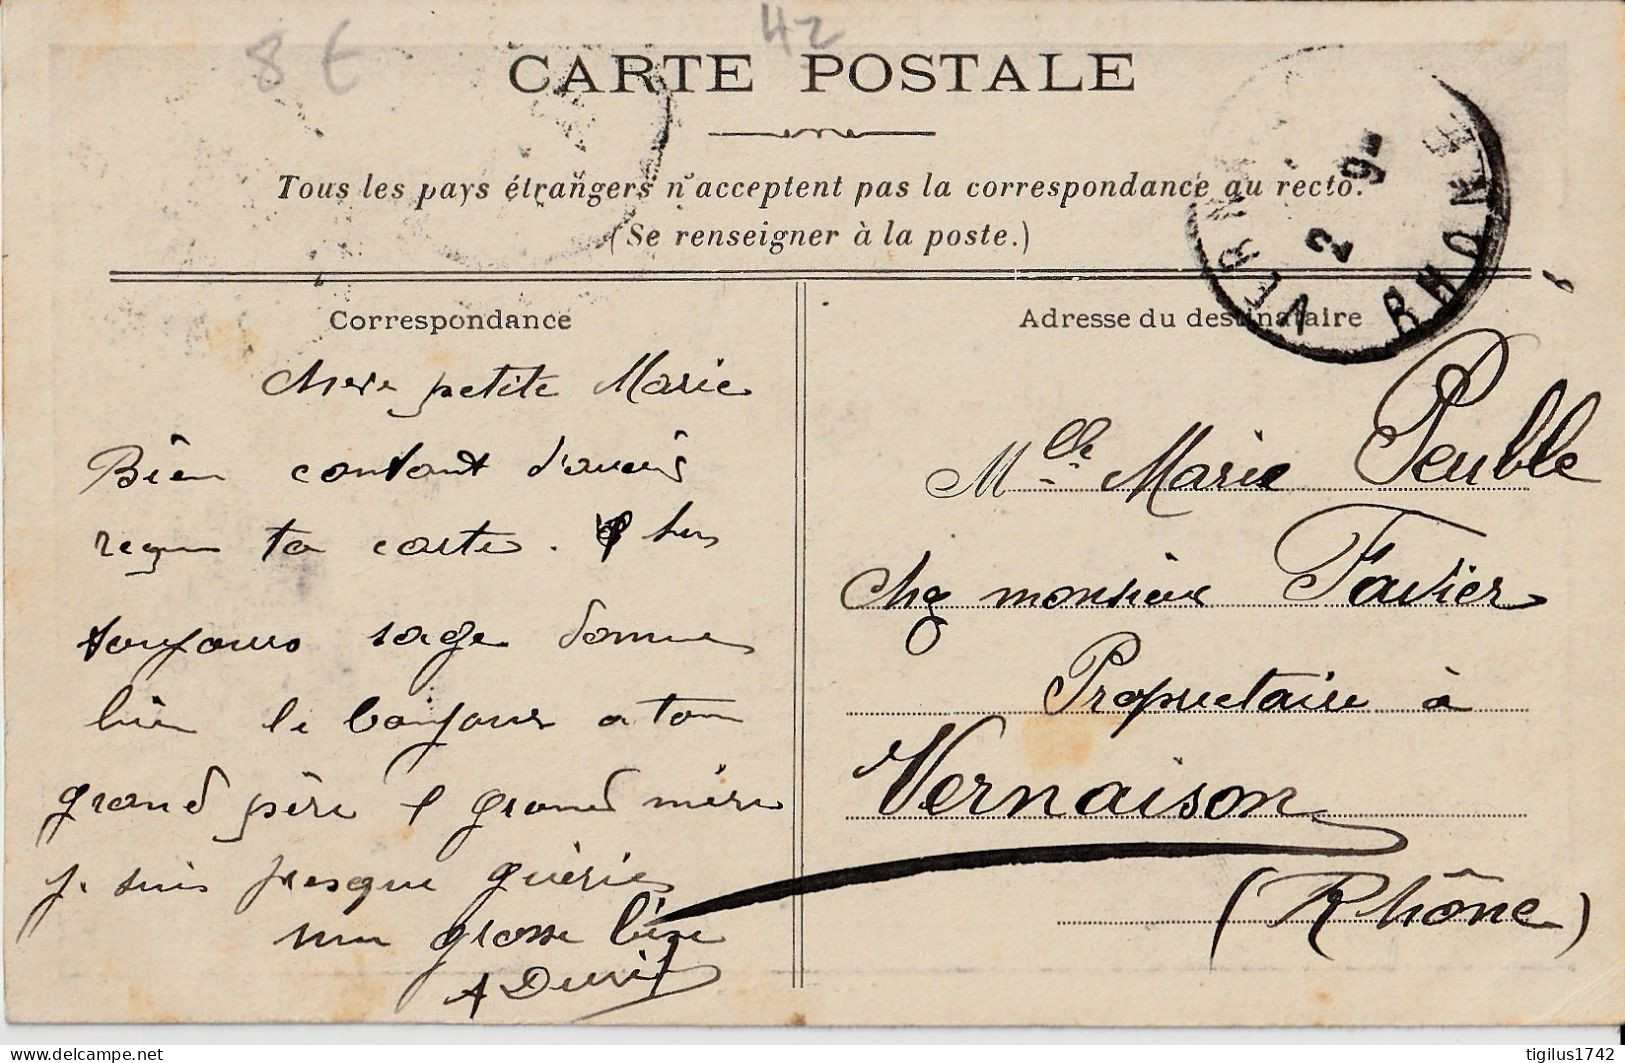 8 €
42
CARTE POSTALE
Tous les pays étrangers n'acceptent pas la correspondance au recto.
(Se renseigner à la poste.)
VERN
2 9
RHONE
Correspondance
Chere petite Marie
Bien contant d'avoir
reçu ta carte.
toujours sage donne
bien le bonjour a ton
grand père et grand mère
je suis presque guérie
une grosse bise
A
Adresse du destinataire
Mlle Marie Peuble
Chez monsieur Favier
Propriétaire à
Vernaison
(Rhône)
delcampe.net
tigilus1742